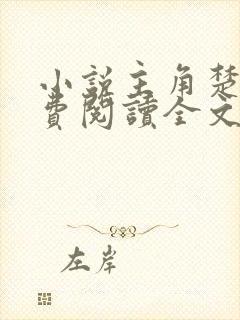 小說主角楚
費閱讀全文
左岸